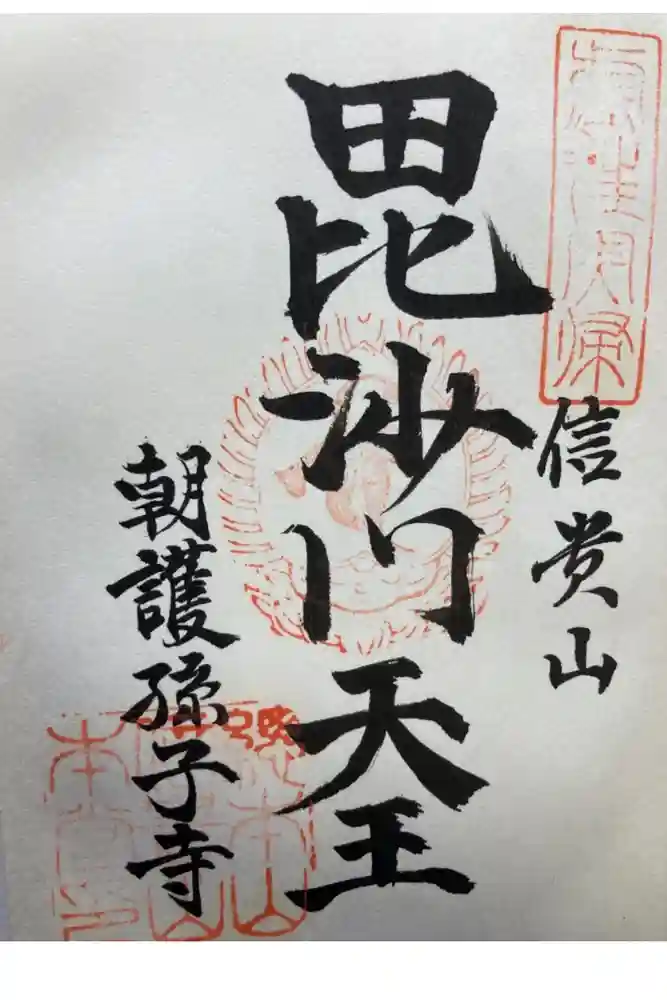 信貴山
毘沙門天王
朝護孫子寺